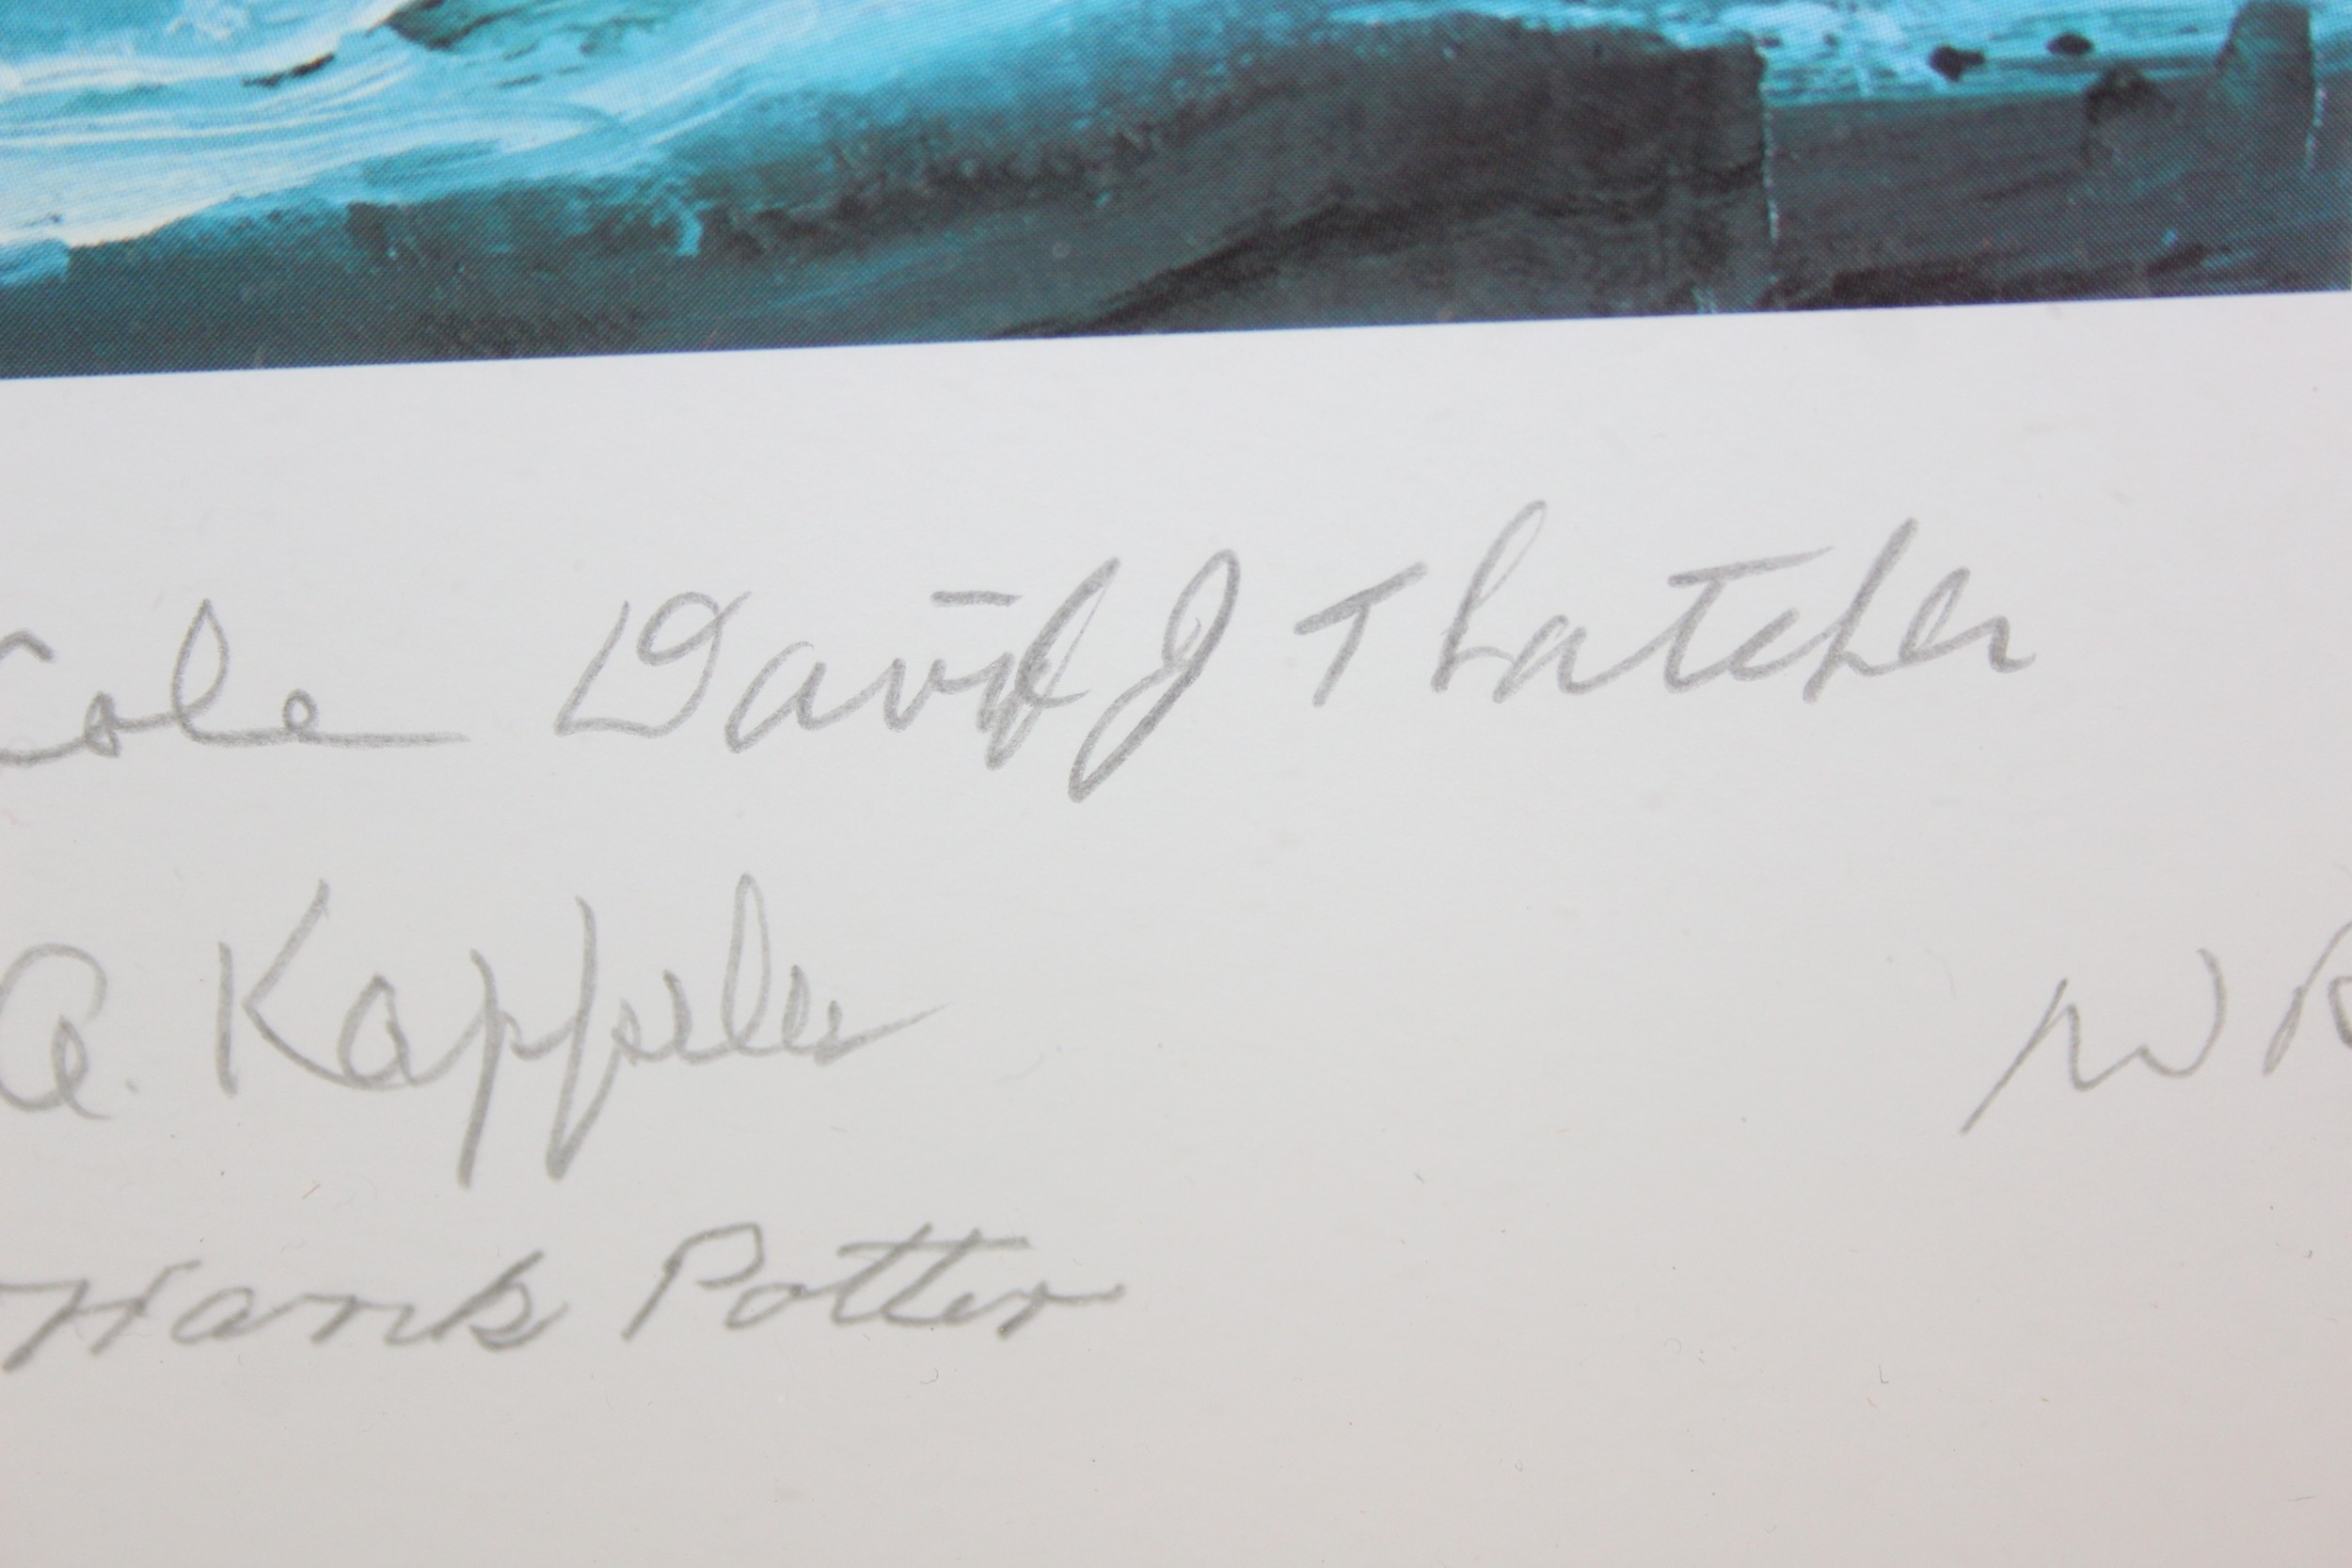 Cole David J Thatcher
A. Kappeler
W
Hank Potter